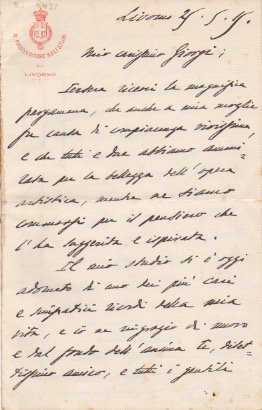 IL PROVVEDITORE AGLI STUDI
DI
LIVORNO
Livorno 25. 5. 15.
Mio carissimo Giorgi,
Iersera ricevei la magnifica
pergamena, che anche a mia moglie
fu causa di compiacenza vivissima,
e che tutti e due abbiamo ammi-
rata per la bellezza dell'opera
artistica, mentre ne siamo
commossi per il pensiero che
l'ha suggerita e ispirata.
Il mio studio si è oggi
adornato di uno dei più cari
e simpatici ricordi della mia
vita, e io ne ringrazio di nuovo
e dal fondo dell'anima te, dilet-
tissimo amico, e tutti i gentili